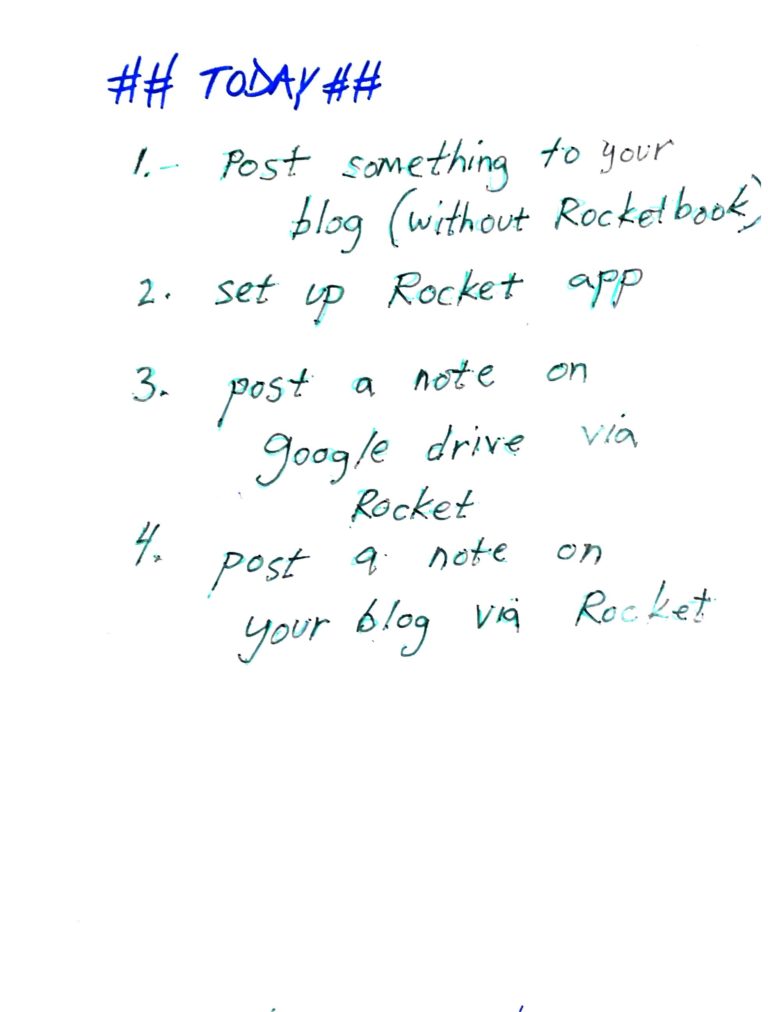 ## TODAY ##
1.- Post something to your
blog (without Rocketbook)
2. set up Rocket app
3. post a note on
google drive via
Rocket
4. post a note on
your blog via Rocket